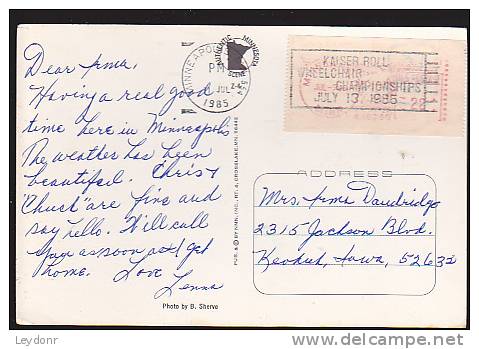 Dear Irma,
Having a real good
time here in Minneapolis
The weather has been
beautiful. Chris &
"Chuck" are fine and
say Hello. Will call
you as soon as I get
home. Love
Lenna
Photo by B. Sherve
PUB. & © BY NMN, INC., RT. 6, CROSSLAKE, MN. 56442
MINNEAPOLIS
PM
JUL 2
1985
554
AUTHENTIC MINNESOTA
SCENE
KAISER ROLL
WHEELCHAIR
CHAMPIONSHIPS
JULY 13, 1985
ADDRESS
Mrs. Irma Dandridge
2315 Jackson Blvd.
Keokuk, Iowa, 52632
Leydonr
delcampe.net